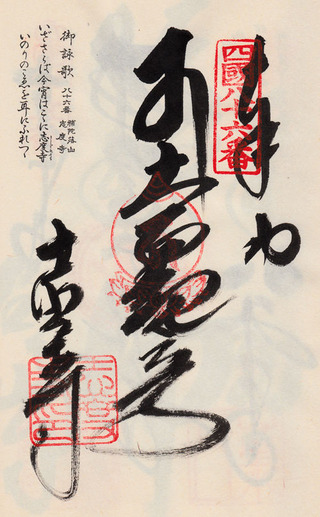 四國八十六番
奉納
十一面観音
志度寺
御詠歌 八十六番 補陀落山 志度寺
いざさらば今宵はこゝに志度寺
いのりのこゑを耳にふれつゝ